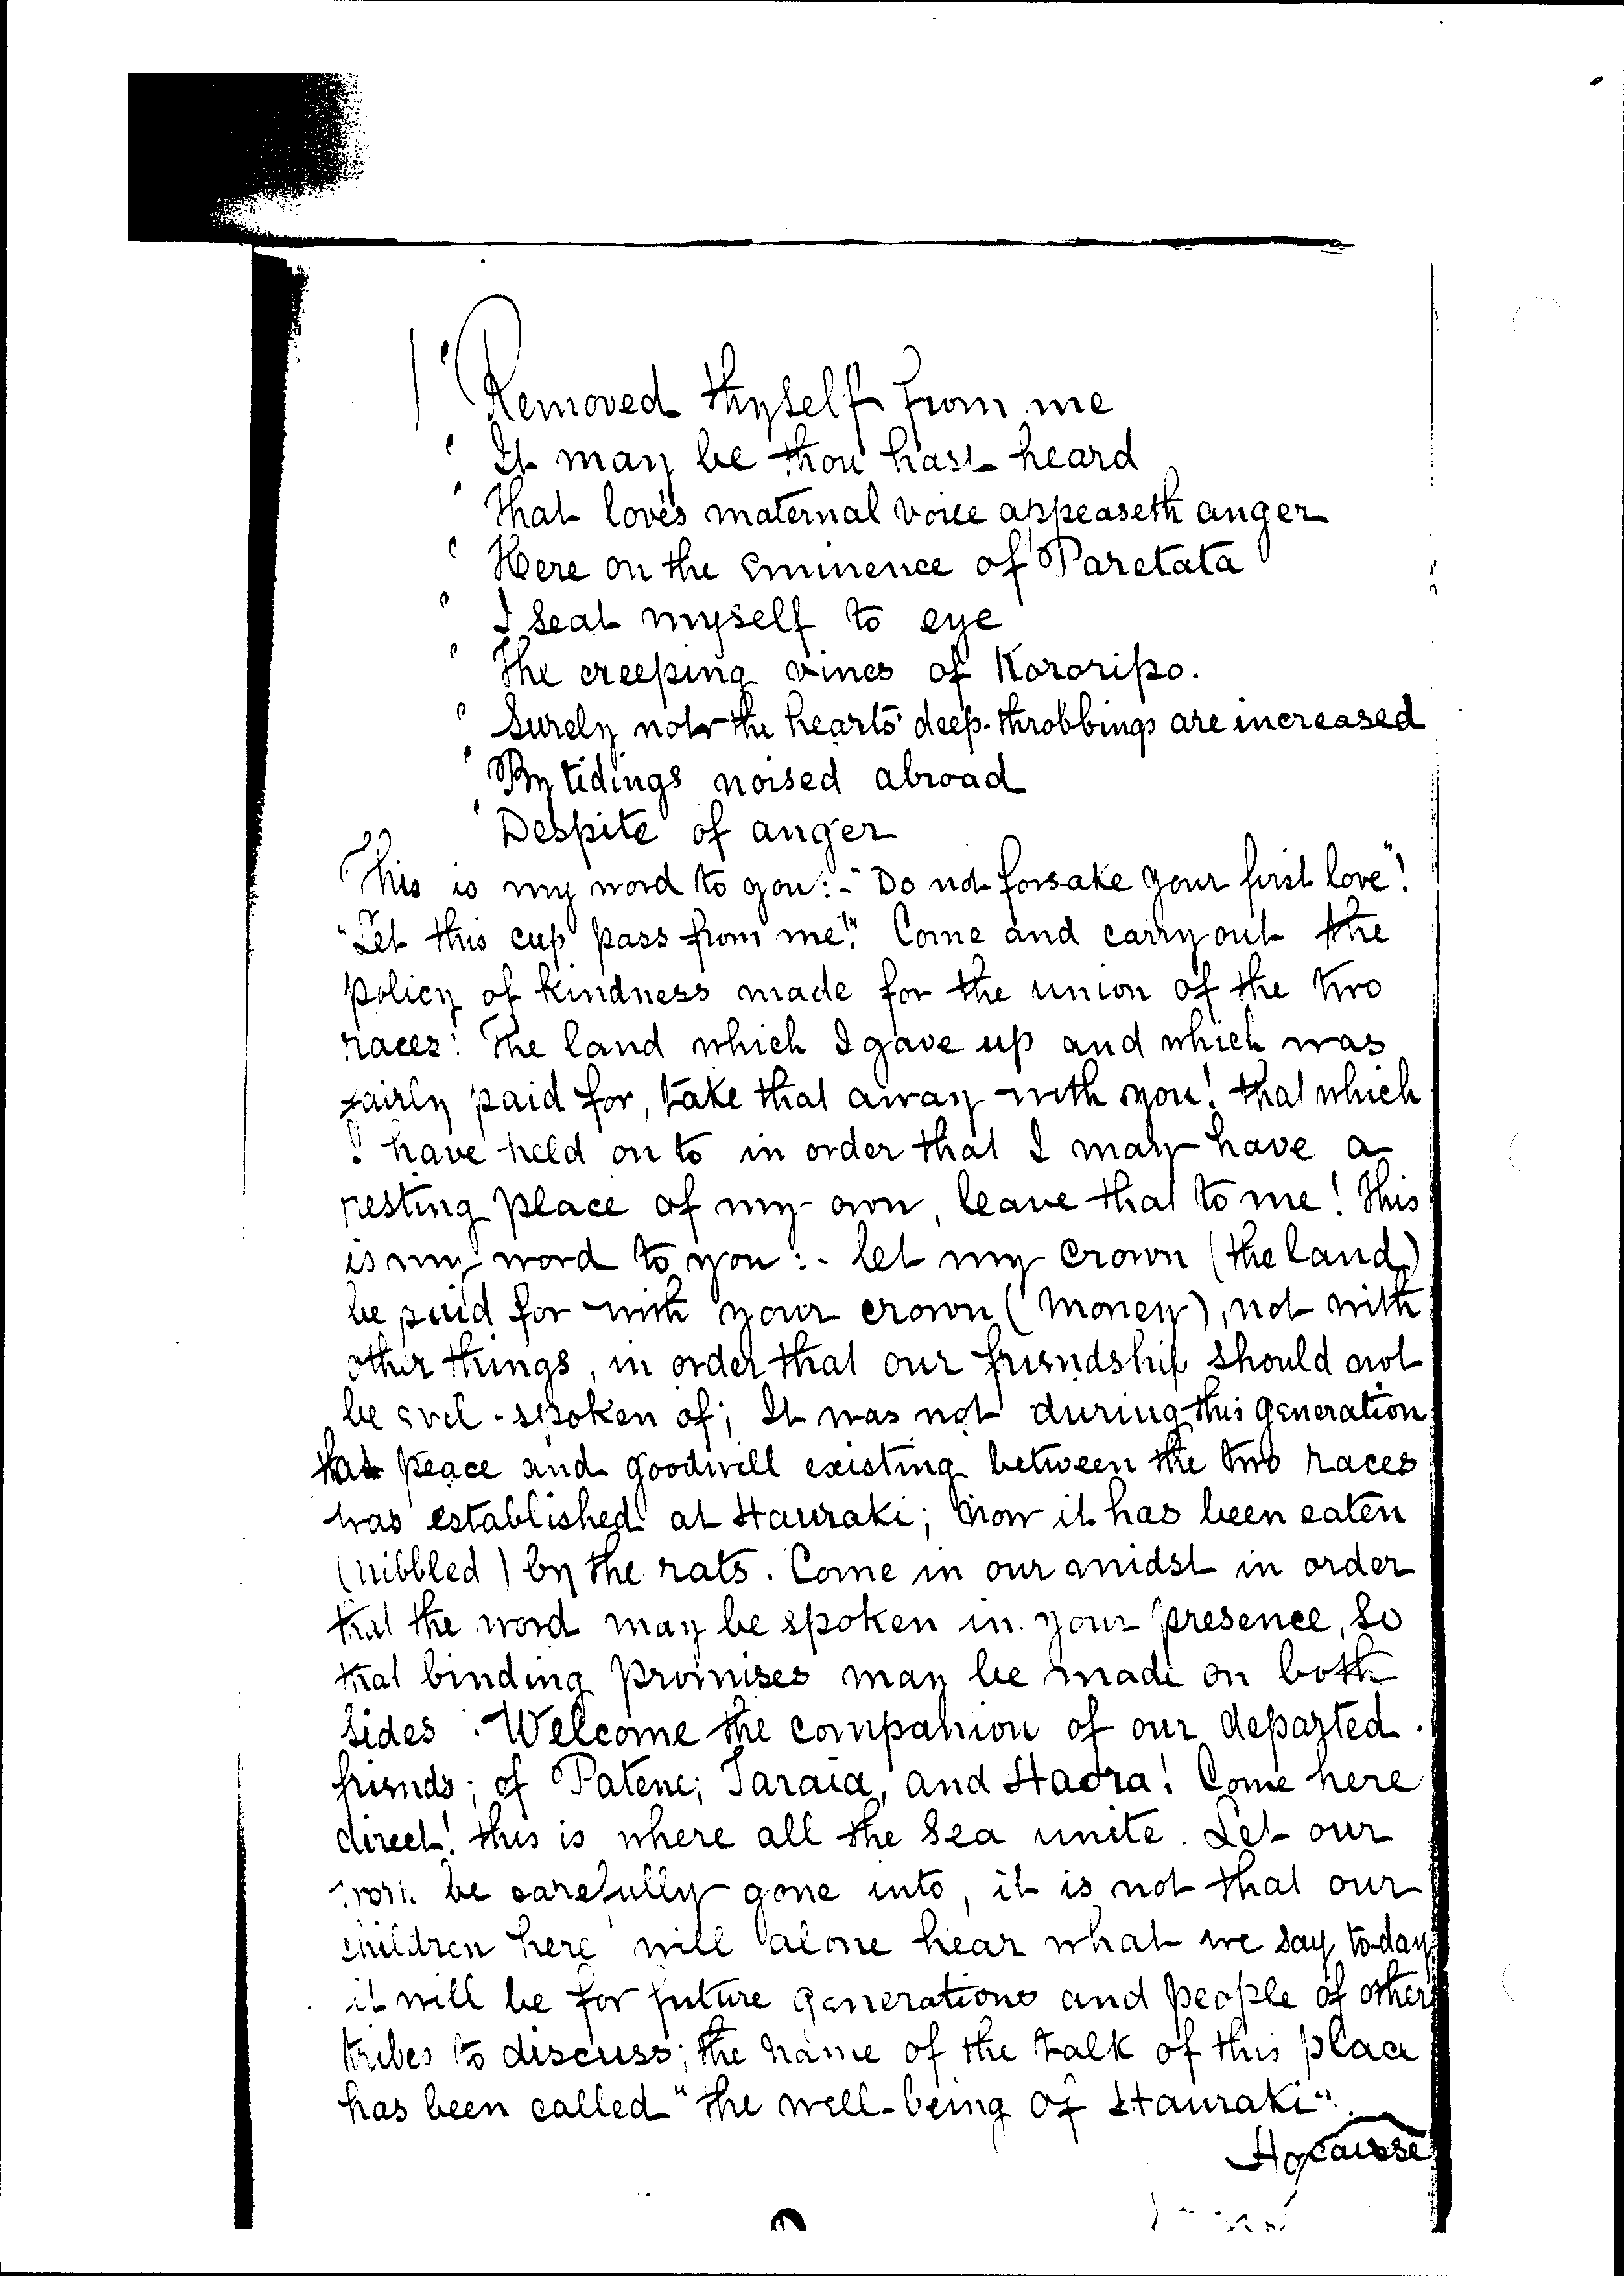 ' Removed thyself from me
' It may be thou hast heard
' That love's maternal voice appeaseth anger
' Here on the Eminence of Paretata
' I seat myself to eye
' The creeping vines of Kororipo.
' Surely not the hearts' deep-throbbings are increased
' By tidings noised abroad
' Despite of anger
This is my word to you:- "Do not forsake your first love"!
"Let this cup pass from me!" Come and carry out the
policy of kindness made for the union of the two
races! The land which I gave up and which was
fairly paid for, take that away with you! that which
I have held on to in order that I may have a
resting place of my own, leave that to me! This
is my word to you:- let my crown (the land)
be paid for with your crown (money), not with
other things, in order that our friendship should not
be evil-spoken of; It was not during this generation
that peace and goodwill existing between the two races
was established at Hauraki; now it has been eaten
(nibbled) by the rats. Come in our midst in order
that the word may be spoken in your presence, so
that binding promises may be made on both
sides. Welcome the companion of our departed
friends; of Patene; Taraia, and Haora! Come here
direct! this is where all the Sea unite. Let our
work be carefully gone into, it is not that our
children here will alone hear what we say to-day
it will be for future generations and people of other
tribes to discuss; the name of the talk of this place
has been called "the well-being of Hauraki".